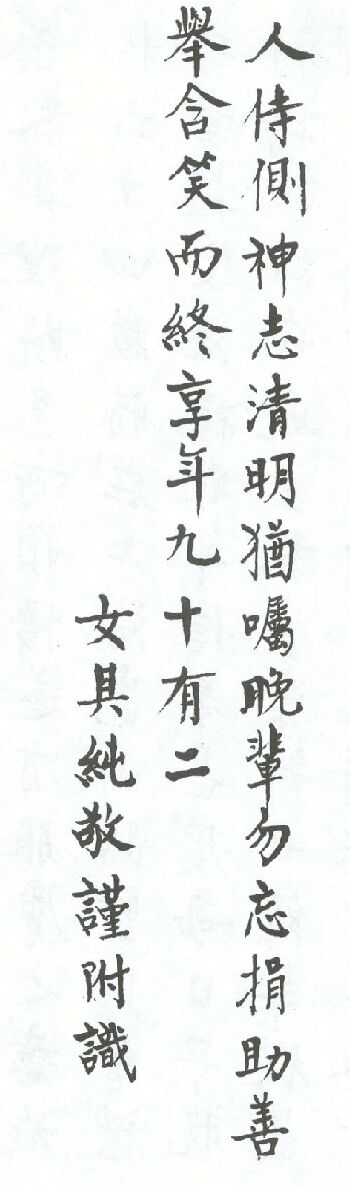 人侍側神志清明猶囑晚輩勿忘捐助善
舉含笑而終享年九十有二
女具純敬謹附識